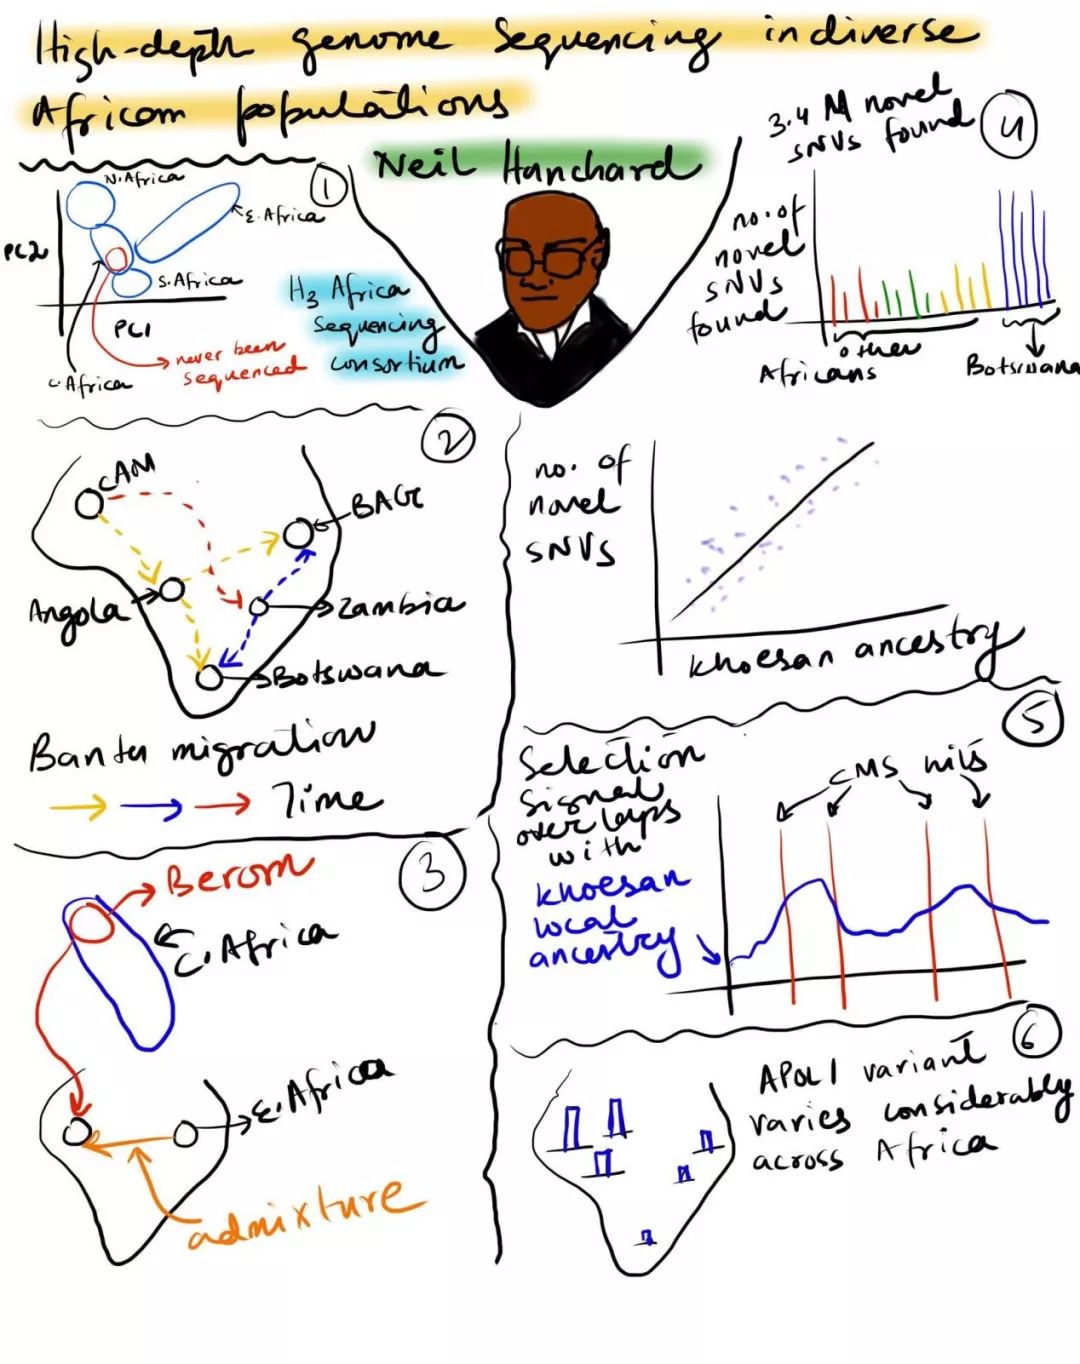 High-depth genome Sequencing in diverse
African populations
Neil Hanchard
H3 Africa
sequencing
consortium
1
N. Africa
E. Africa
PC2
S. Africa
PC1
never been
sequenced
C. Africa
2
CAM
BAGC
Angola
Zambia
Botswana
Bantu migration
Time
3
Berom
C. Africa
E. Africa
admixture
3.4 M novel
SNVs found
4
no. of
novel
SNVs
found
other
Africans
Botswana
no. of
novel
SNVs
Khoesan ancestry
5
Selection
Signal
overlaps
with
Khoesan
local
ancestry
CMS hits
6
APOL1 variant
varies considerably
across Africa